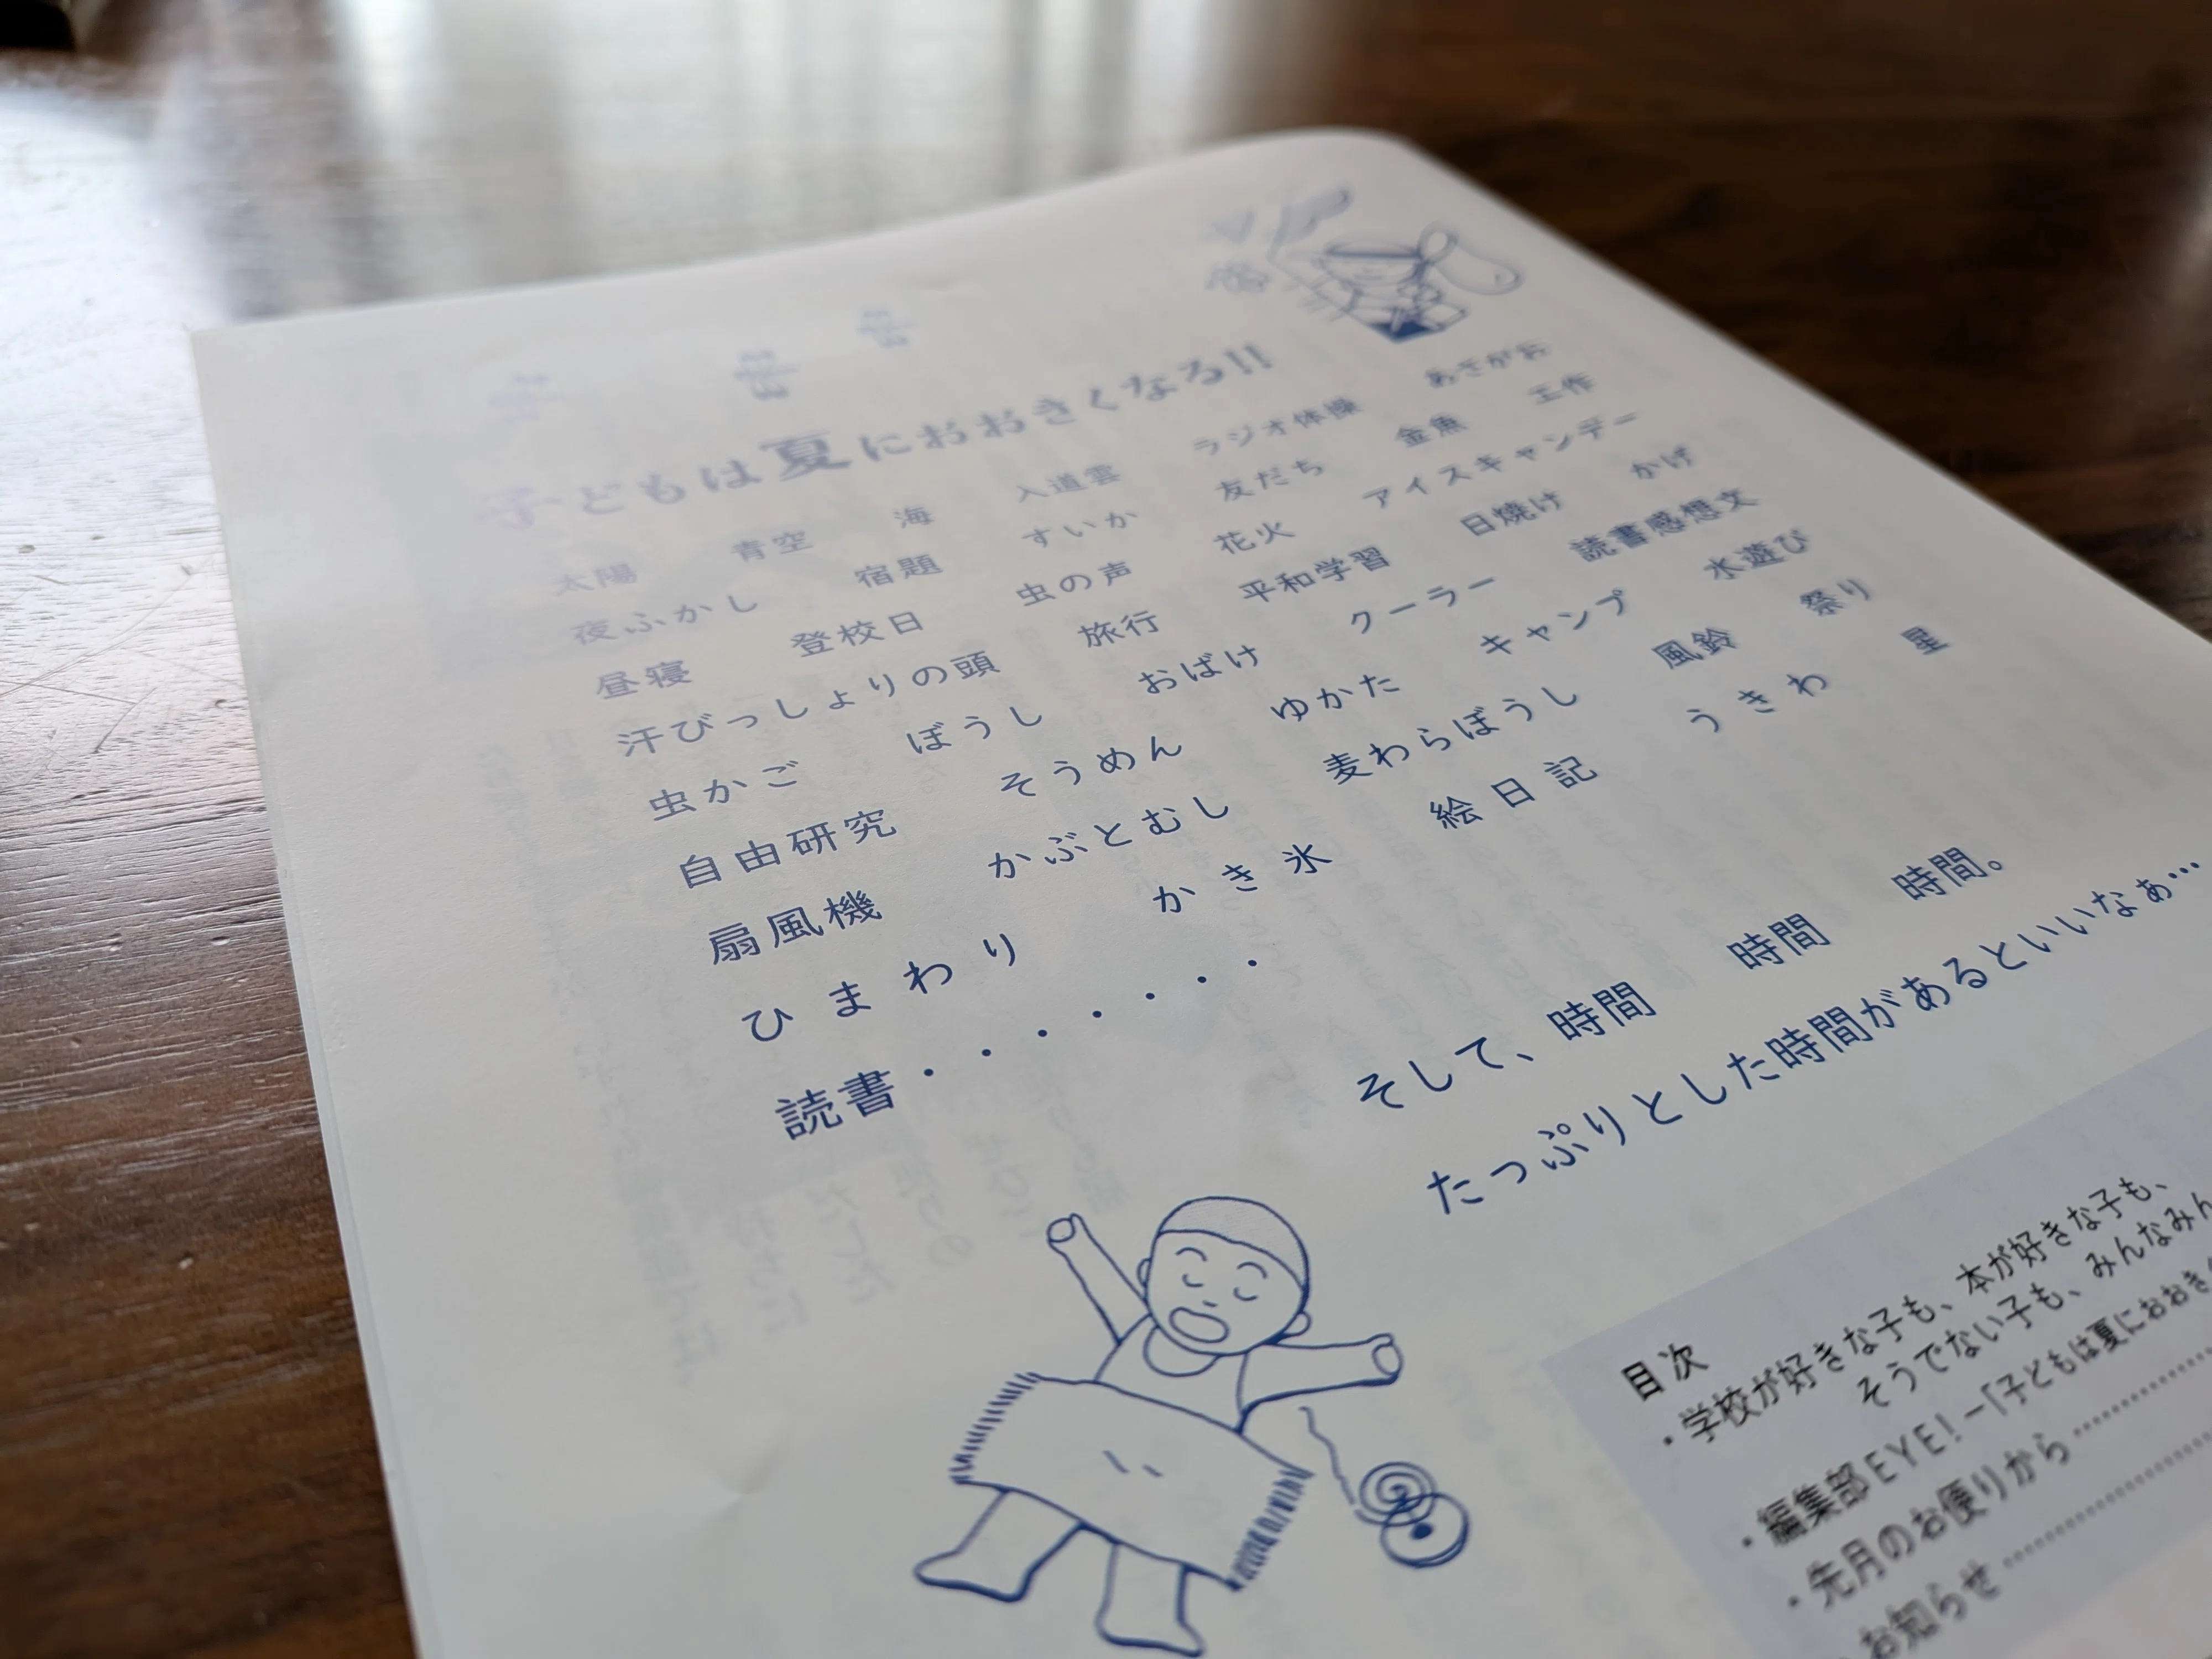 子どもは夏におおきくなる!!
太陽 青空 海 入道雲 ラジオ体操 あさがお
夜ふかし 宿題 すいか 友だち 金魚 工作
昼寝 登校日 虫の声 花火 アイスキャンデー
汗びっしょりの頭 旅行 平和学習 日焼け かげ
虫かご ぼうし おばけ クーラー 読書感想文
自由研究 そうめん ゆかた キャンプ 水遊び
扇風機 かぶとむし 麦わらぼうし 風鈴 祭り
ひまわり かき氷 絵日記 うきわ 星
読書・・・・・・・
そして、時間 時間 時間。
たっぷりとした時間があるといいなぁ…
目次
・学校が好きな子も、本が好きな子も、
そうでない子も、みんなみん
・編集部EYE!－「子どもは夏におおき
・先月のお便りから
お知らせ